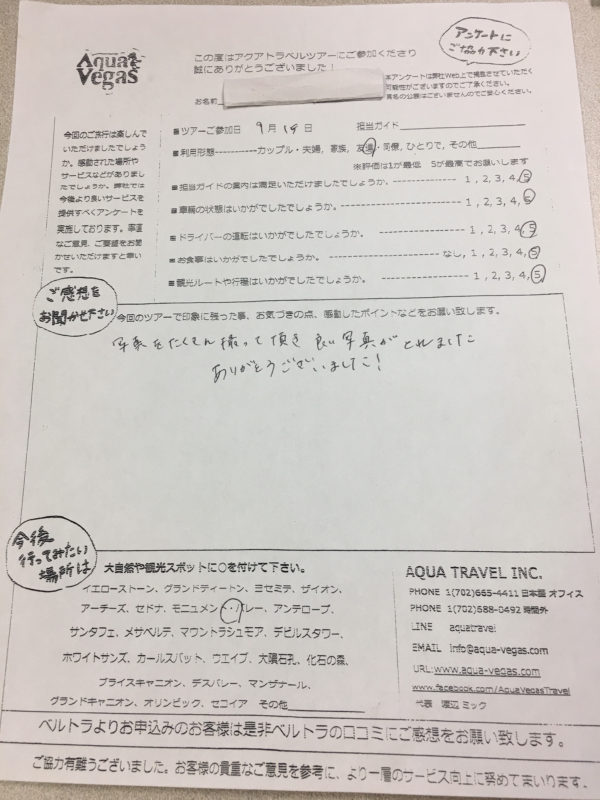 Aqua Vegas
この度はアクアトラベルツアーにご参加くださり
誠にありがとうございました！
アンケートに
ご協力下さい
本アンケートは弊社Web上で掲載させていただく
可能性がございますのでご了承ください。
実名の公表はございませんのでご安心ください。
お名前
今回のご旅行は楽しんで
いただけましたでしょう
か。感動された場所や
サービスなどがありまし
たでしょうか。弊社では
今後より良いサービスを
提供すべくアンケートを
実施しております。率直
なご意見、ご要望をお聞
かせいただけますと幸い
です。
■ツアーご参加日 9月14日 担当ガイド
■利用形態-----------カップル・夫婦, 家族, 友達・同僚, ひとりで, その他
※評価は1が最低 5が最高でお願いします
■担当ガイドの案内は満足いただけましたでしょうか。 1, 2, 3, 4, 5
■車輌の状態はいかがでしたでしょうか。 1, 2, 3, 4, 5
■ドライバーの運転はいかがでしたでしょうか。 1, 2, 3, 4, 5
■お食事はいかがでしたでしょうか。 なし, 1, 2, 3, 4, 5
■観光ルートや行程はいかがでしたでしょうか。 1, 2, 3, 4, 5
ご感想を
お聞かせ下さい
今回のツアーで印象に残った事、お気づきの点、感動したポイントなどをお願い致します。
写真をたくさん撮って頂き 良い写真がとれました
ありがとうございました！
今後
行ってみたい
場所は
大自然や観光スポットに○を付けて下さい。
イエローストーン、グランドティートン、ヨセミテ、ザイオン、
アーチーズ、セドナ、モニュメントバレー、アンテロープ、
サンタフェ、メサベルテ、マウントラシュモア、デビルスタワー、
ホワイトサンズ、カールスバット、ウエイブ、大隕石孔、化石の森、
ブライスキャニオン、デスバレー、マンザナール、
グランドキャニオン、オリンピック、セコイア その他
AQUA TRAVEL INC.
PHONE 1(702)665-4411 日本語 オフィス
PHONE 1(702)588-0492 時間外
LINE aquatravel
EMAIL info@aqua-vegas.com
URL:www.aqua-vegas.com
www.facebook.com/AquaVegasTravel
代表 渡辺 ミック
ベルトラよりお申込みのお客様は是非ベルトラの口コミにご感想をお願い致します。
ご協力有難うございました。お客様の貴重なご意見を参考に、より一層のサービス向上に努めてまいります。